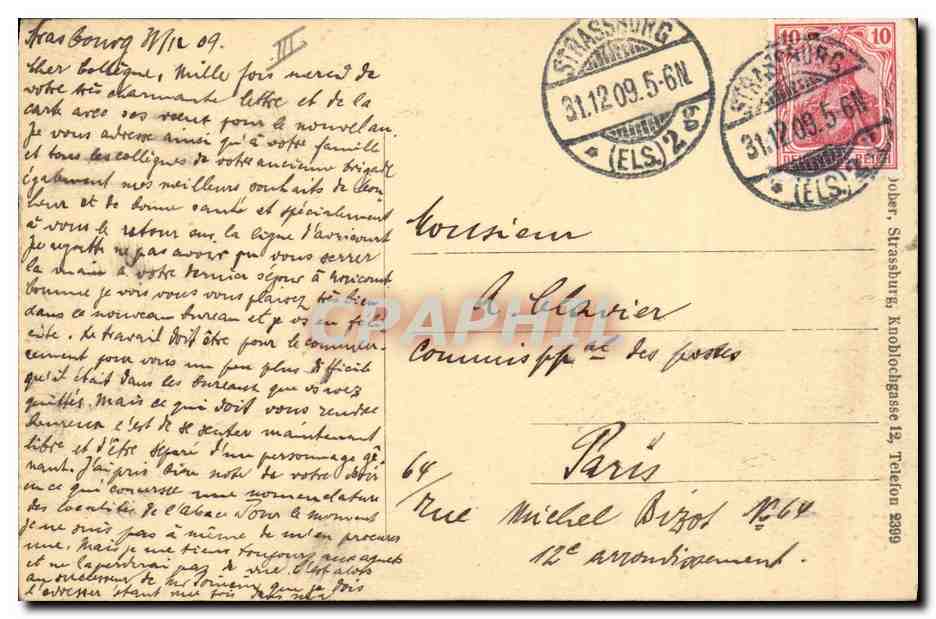 Strasbourg 31/12 09.
III
Cher Collègue, Mille fois merci de
votre très charmante lettre et de la
carte avec ses vœux pour le nouvel an.
Je vous adresse ainsi qu'à votre famille
et tous les collègues de votre ancienne brigade
également mes meilleurs souhaits de bon
heur et de bonne santé et spécialement
à vous le retour sur la ligne d'Avricourt
Je regrette ne pas avoir pu vous serrer
la main à votre dernier séjour à Avricourt
Comme je vois vous vous plaisez très bien
dans ce nouveau bureau et je vs en féli
cite. Le travail doit être pour le commen
cement pour vous un peu plus difficile
qu'il était dans les bureaux que vs avez
quittés. Mais ce qui doit vous rendre
heureux c'est de se sentir maintenant
libre et d'être séparé d'un personnage gê
nant. J'ai pris bien note de votre désir
en ce qui concerne une nomenclature
des localités de l'Alsace Pour le moment
je ne suis pas à même de m'en procurer
une. Mais je me tiens toujours aux aguets
et ne la perdrai pas de vue. C'est alors
au successeur de que je dois
l'adresser étant une fois dans
STRASSBURG
31.12.09.5-6N
* (ELS.) 2 g
STRASSBURG
31.12.09.5-6N
* (ELS.) 2
10 10
DEUTSCHES REICH
Monsieur
A. Clavier
Commis ppal des postes
Paris
64/
rue Michel Bizot No 64
12e arrondissement
CPAPHIL
Dober, Strassburg, Knoblochgasse 12, Telefon 2399